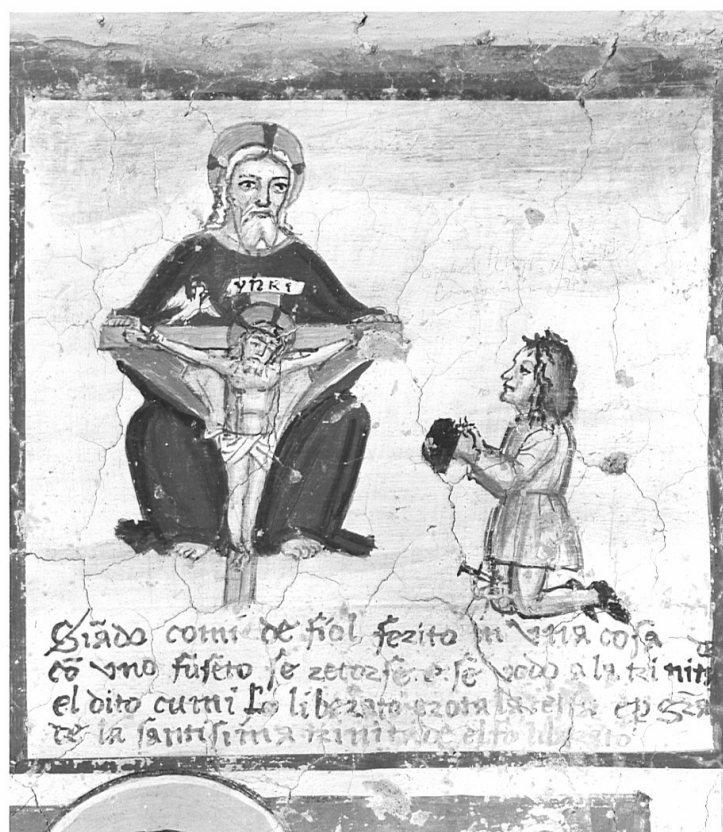 yhs
Siādo comi de fiol ferito in una cosa
cō uno fuseto se retorse e se vodo a la trinita
el dito cumi fo liberato
de la santisima trinitade el fo liberato